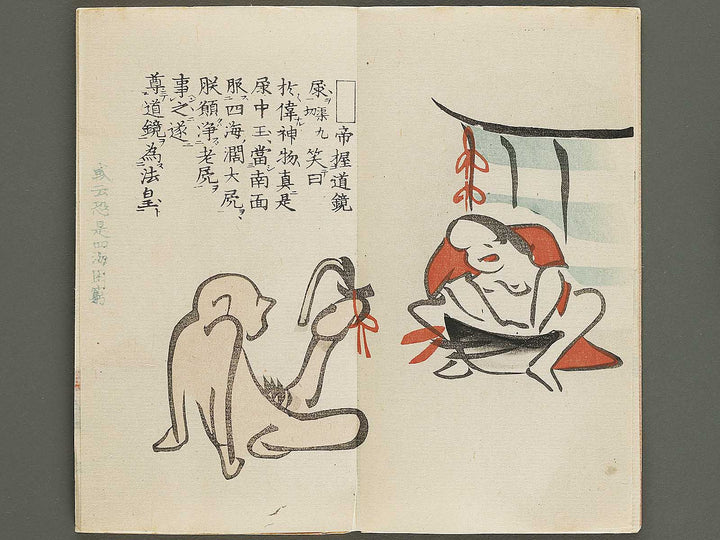 帝握道鏡
屎切渠九笑曰
於偉神物真是
屎中王當南面
服四海濶大屍
朕願淨老屍
事之遂
尊道鏡為法皇
或云恐是四海困窮